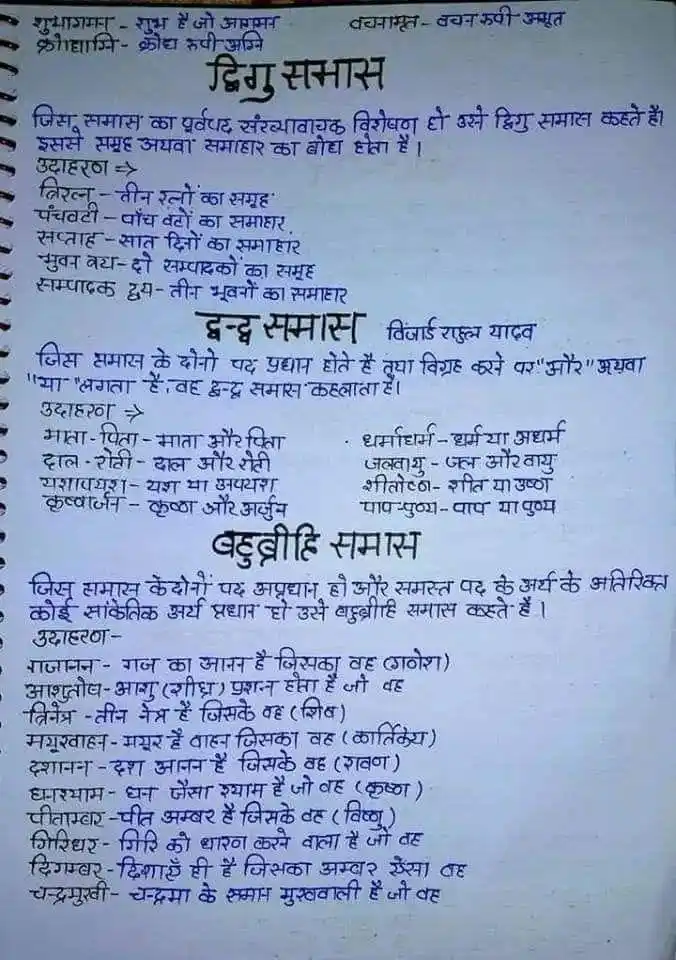 शुभागमन - शुभ है जो आगमन वचनामृत - वचन रूपी अमृत
क्रोधाग्नि - क्रोध रूपी अग्नि
द्विगु समास
जिस समास का पूर्वपद संख्यावाचक विशेषण हो उसे द्विगु समास कहते है।
इससे समूह अथवा समाहार का बोध होता है।
उदाहरण ⇒
त्रिरत्न - तीन रत्नों का समूह
पंचवटी - पाँच वटों का समाहार
सप्ताह - सात दिनों का समाहार
भुवन त्रय - दो सम्पादकों का समूह
सम्पादक द्वय - तीन भूवनों का समाहार
द्वन्द्व समास विजार्ड राहुल यादव
जिस समास के दोनो पद प्रधान होते है तथा विग्रह करने पर "और" अथवा
"या" लगता है, वह द्वन्द्व समास कहलाता है।
उदाहरण ⇒
माता - पिता - माता और पिता धर्माधर्म - धर्म या अधर्म
दाल - रोटी - दाल और रोटी जलवायु - जल और वायु
यशापयश - यश या अपयश शीतोष्ण - शीत या उष्ण
कृष्णार्जन - कृष्ण और अर्जुन पाप-पुण्य - पाप या पुण्य
बहुब्रीहि समास
जिस समास के दोनों पद अप्रधान हो और समस्त पद के अर्थ के अतिरिक्त
कोई सांकेतिक अर्थ प्रधान हो उसे बहुब्रीहि समास कहते है।
उदाहरण -
गजानन - गज का आनन है जिसका वह (गणेश)
आशुतोष - आशु (शीघ्र) प्रशन होता है जो वह
त्रिनेत्र - तीन नेत्र है जिसके वह (शिव)
मयूरवाहन - मयूर है वाहन जिसका वह (कार्तिकेय)
दशानन - दश आनन है जिसके वह (रावण)
घनश्याम - घन जैसा श्याम है जो वह (कृष्ण)
पीताम्बर - पीत अम्बर है जिसके वह (विष्णु)
गिरिधर - गिरि को धारण करने वाला है जो वह
दिगम्बर - दिशाएँ ही है जिसका अम्बर ऐसा वह
चन्द्रमुखी - चन्द्रमा के समान मुखवाली है जो वह